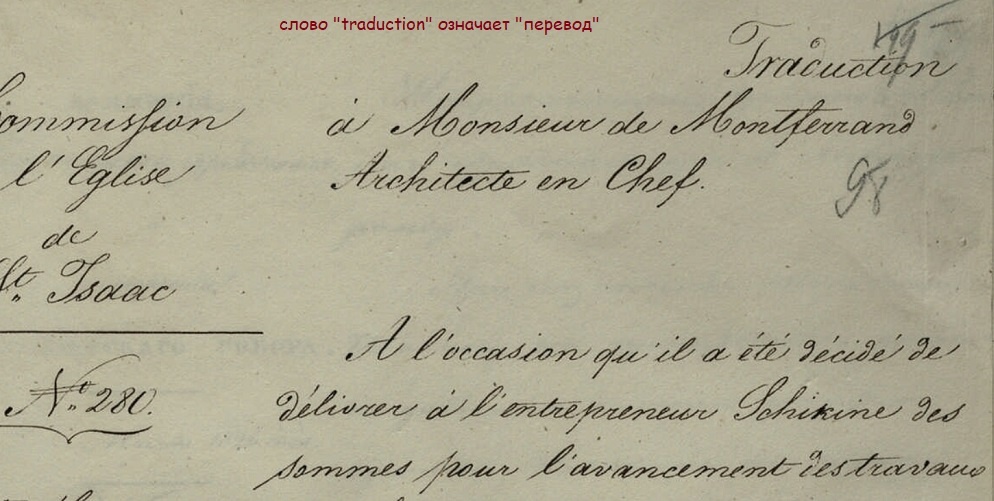 слово "traduction" означает "перевод"
Traduction
Commission
l'Eglise
de
St. Isaac
N° 280.
à Monsieur de Montferrand
Architecte en Chef.
98
A l'occasion qu'il a été décidé de
délivrer à l'entrepreneur Schikine des
sommes pour l'avancement des travaux